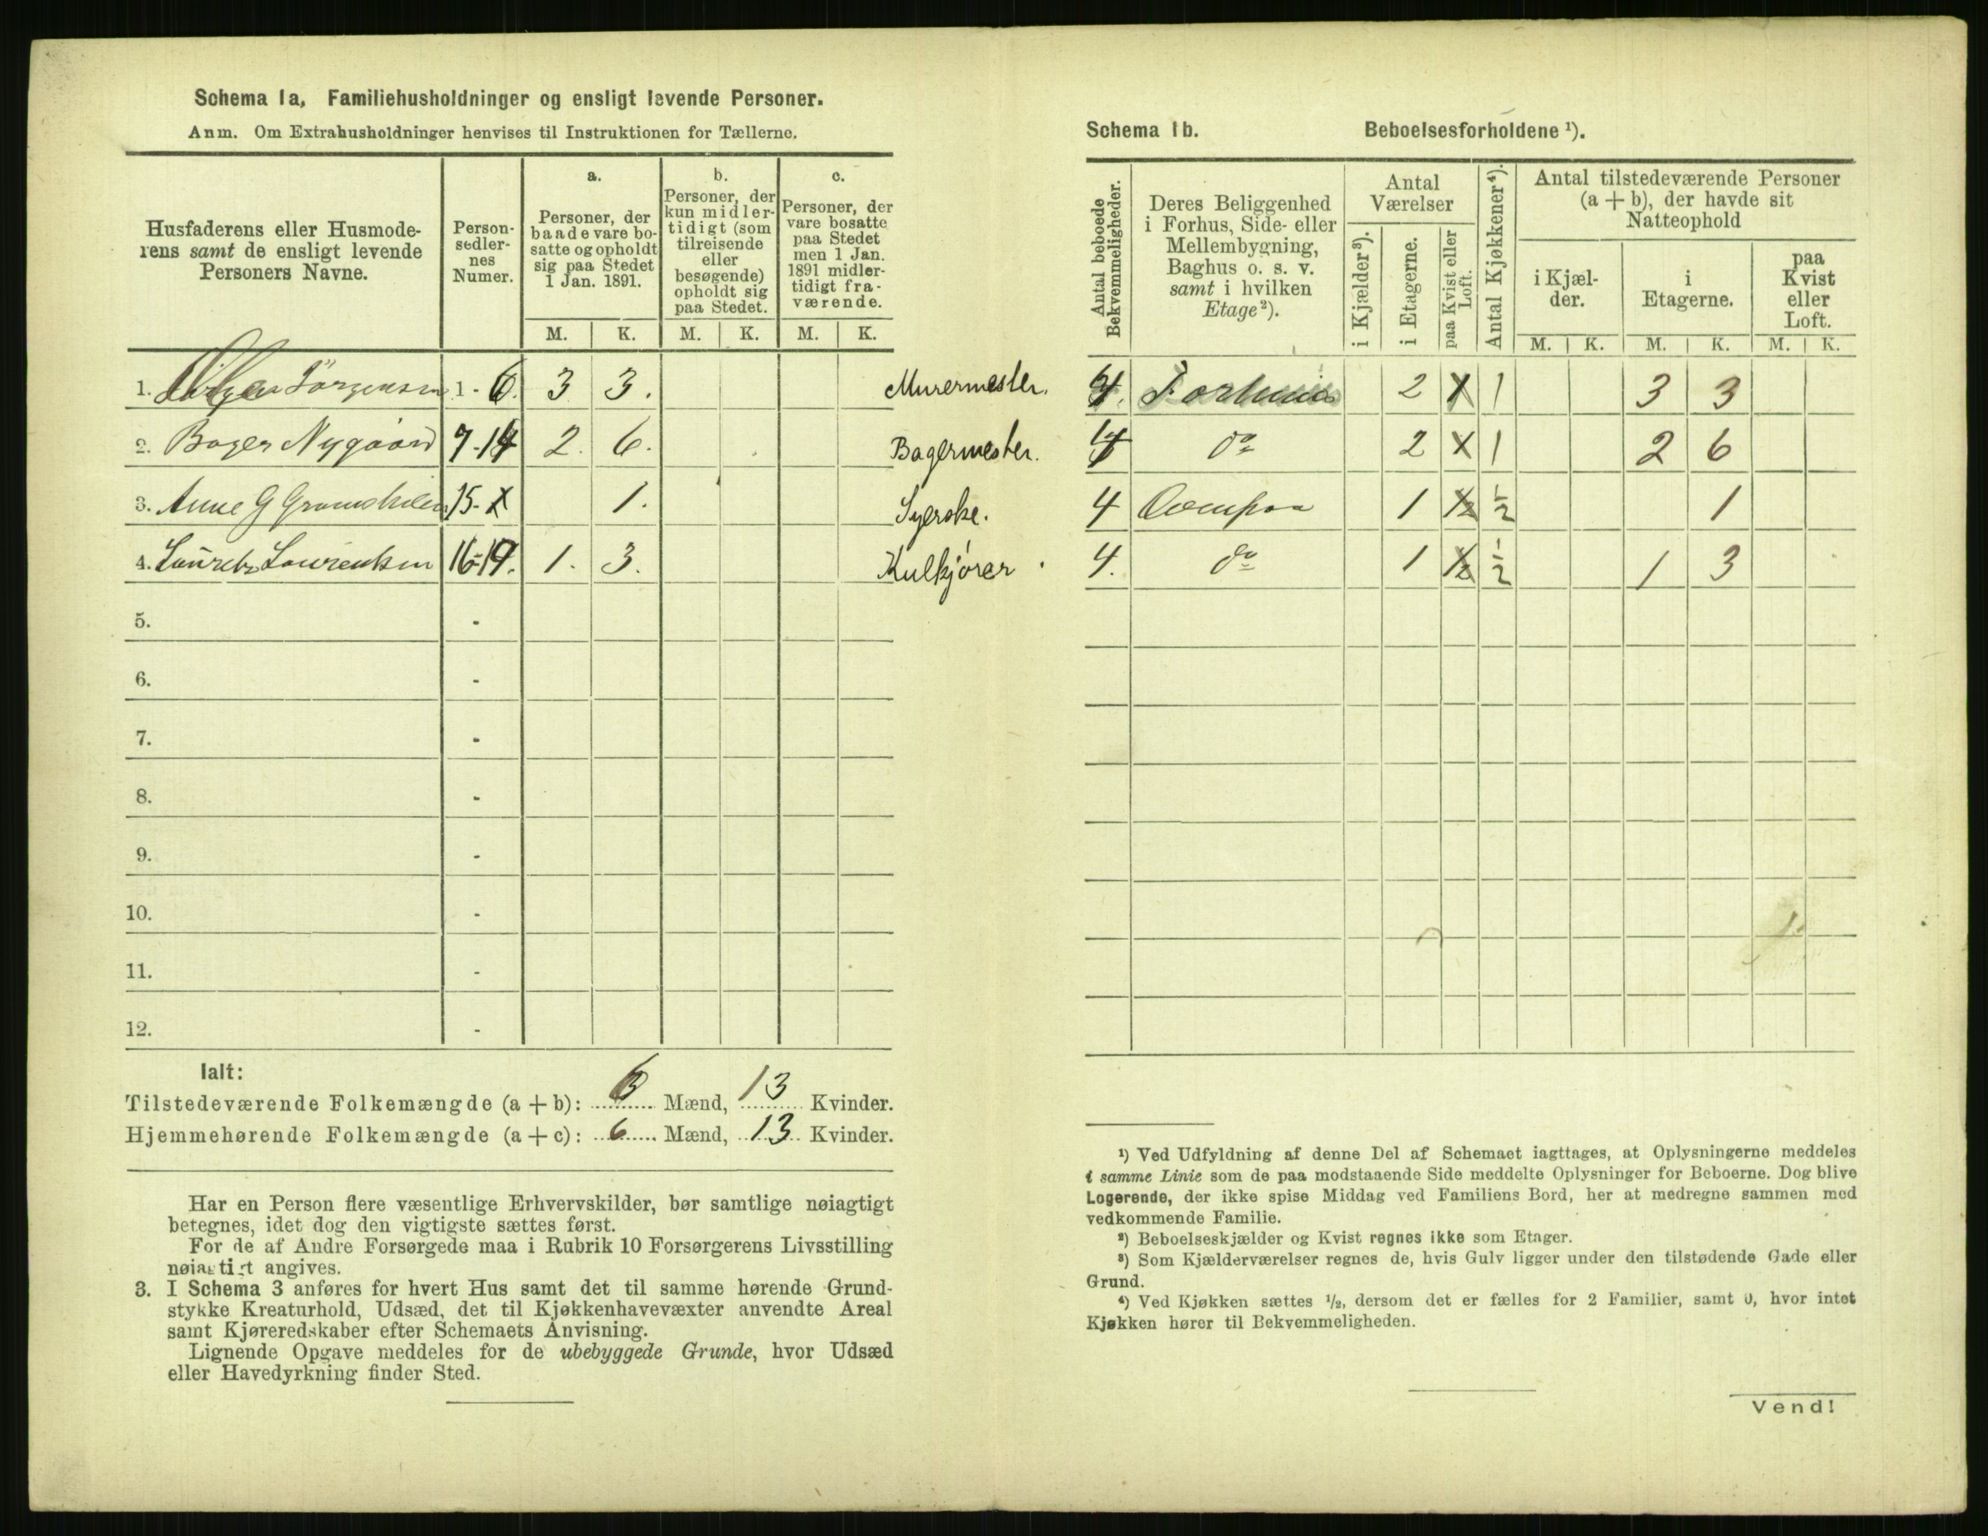 Schema 1a. Familiehusholdninger og ensligt levende Personer.
Anm. Om Extrahusholdninger henvises til Instruktionen for Tællerne.
Husfaderens eller Husmoderens samt de ensligt levende Personers Navne.
Person-sedler-nes Numer.
a. Personer, der baade vare bosatte og opholdt sig paa Stedet 1 Jan. 1891.
b. Personer, der kun midlertidigt (som tilreisende eller besøgende) opholdt sig paa Stedet.
c. Personer, der vare bosatte paa Stedet men 1 Jan. 1891 midlertidigt fraværende.
M. K. M. K. M. K.
1. Jörgensen 1-6. 3 3. Murermester.
2. Bager Nygaard 7-14 2. 6. Bagermester.
3. Anne G 15- 1. Syerske.
4. Laurentsen 16-19. 1. 3. Kulkjører
5. -
6. -
7. -
8. -
9. -
10. -
11. -
12. -
Ialt:
Tilstedeværende Folkemængde (a + b): 6 Mænd, 13 Kvinder.
Hjemmehørende Folkemængde (a + c): 6 Mænd, 13 Kvinder.
Har en Person flere væsentlige Erhvervskilder, bør samtlige nøiagtigt
betegnes, idet dog den vigtigste sættes først.
For de af Andre Forsørgede maa i Rubrik 10 Forsørgerens Livsstilling
nøiagtigt angives.
3. I Schema 3 anføres for hvert Hus samt det til samme hørende Grund-
stykke Kreaturhold, Udsæd, det til Kjøkkenhavevæxter anvendte Areal
samt Kjøreredskaber efter Schemaets Anvisning.
Lignende Opgave meddeles for de ubebyggede Grunde, hvor Udsæd
eller Havedyrkning finder Sted.
Schema 1b. Beboelsesforholdene ¹).
Antal beboede Bekvemmeligheder.
Deres Beliggenhed i Forhus, Side- eller Mellembygning, Baghus o. s. v. samt i hvilken Etage²).
Antal Værelser
i Kjælder³).
i Etagerne.
paa Kvist eller Loft.
Antal Kjøkkener⁴).
Antal tilstedeværende Personer (a + b), der havde sit Natteophold
i Kjælder.
i Etagerne.
paa Kvist eller Loft.
M. K. M. K. M. K.
4. Forhuus 2 x 1 3 3
4 do 2 x 1 2 6
4 Ovenpaa 1 ½ 1
4. do 1 ½ 1 3
¹) Ved Udfyldning af denne Del af Schemaet iagttages, at Oplysningerne meddeles
i samme Linie som de paa modstaaende Side meddelte Oplysninger for Beboerne. Dog blive
Logerende, der ikke spise Middag ved Familiens Bord, her at medregne sammen med
vedkommende Familie.
²) Beboelseskjælder og Kvist regnes ikke som Etager.
³) Som Kjælderværelser regnes de, hvis Gulv ligger under den tilstødende Gade eller
Grund.
⁴) Ved Kjøkken sættes ½, dersom det er fælles for 2 Familier, samt 0, hvor intet
Kjøkken hører til Bekvemmeligheden.
Vend!